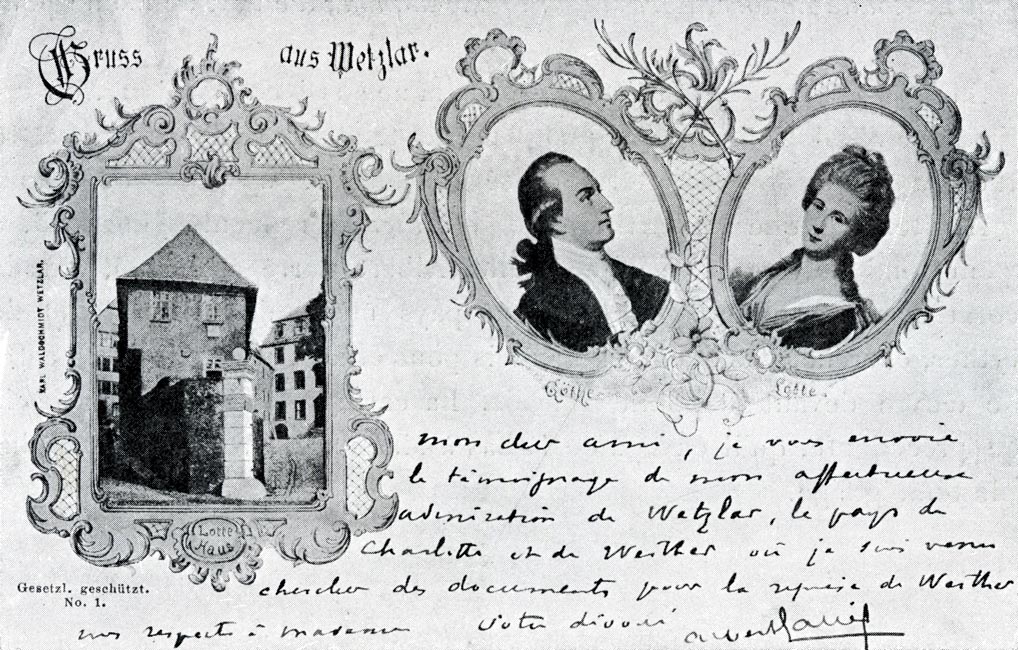 Gruss aus Wetzlar.
KARL WALDSCHMIDT WETZLAR.
Göthe
Lotte.
Lotte
Haus
Gesetzl. geschützt.
No. 1.
mon cher ami, je vous envoie
le témoignage de mon affectueuse
admiration de Wetzlar, le pays de
Charlotte et de Werther où je suis venu
chercher des documents pour la reprise de Werther
mes respects à madame votre dévoué